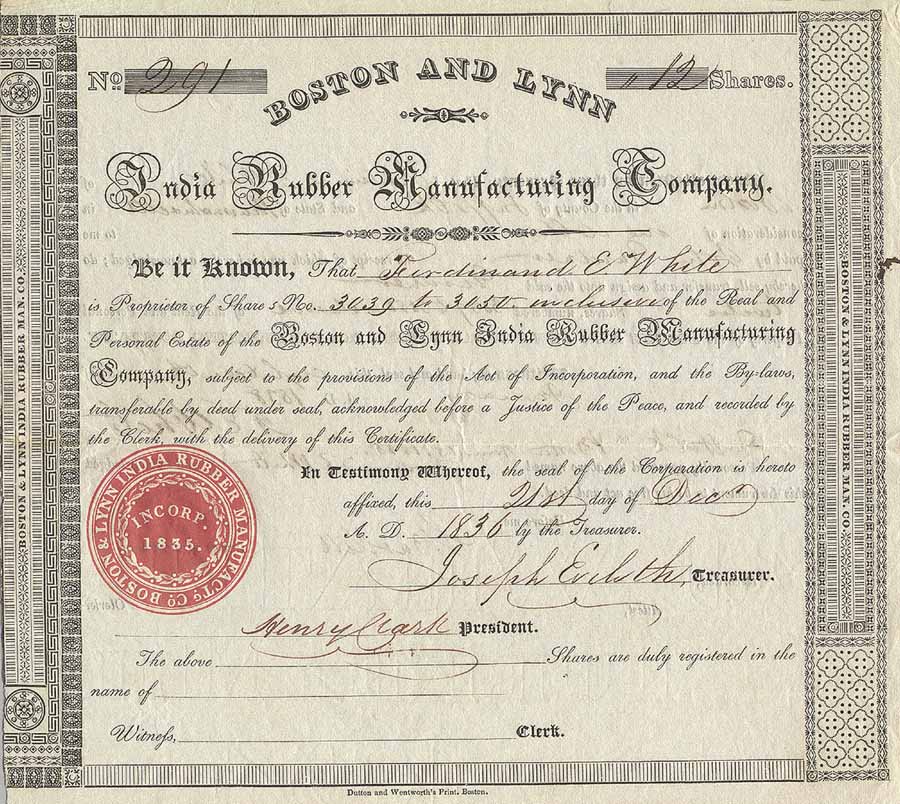 No. 291
BOSTON AND LYNN
" 12 Shares.
India Rubber Manufacturing Company.
Be it Known, That Ferdinand E. White
is Proprietor of Shares No. 3039 to 3050 inclusive of the Real and
Personal Estate of the Boston and Lynn India Rubber Manufacturing
Company, subject to the provisions of the Act of Incorporation, and the By-laws,
transferable by deed under seal, acknowledged before a Justice of the Peace, and recorded by
the Clerk, with the delivery of this Certificate.
In Testimony Whereof, the seal of the Corporation is hereto
affixed, this 21st day of Dec
A. D. 1836 by the Treasurer.
Joseph Eveleth, Treasurer.
Henry Clark President.
The above Shares are duly registered in the
name of
Witness, Clerk.
BOSTON & LYNN INDIA RUBBER MANUFACTG. CO.
INCORP.
1835.
BOSTON & LYNN INDIA RUBBER MAN. CO.
BOSTON & LYNN INDIA RUBBER MAN. CO.
Dutton and Wentworth's Print, Boston.